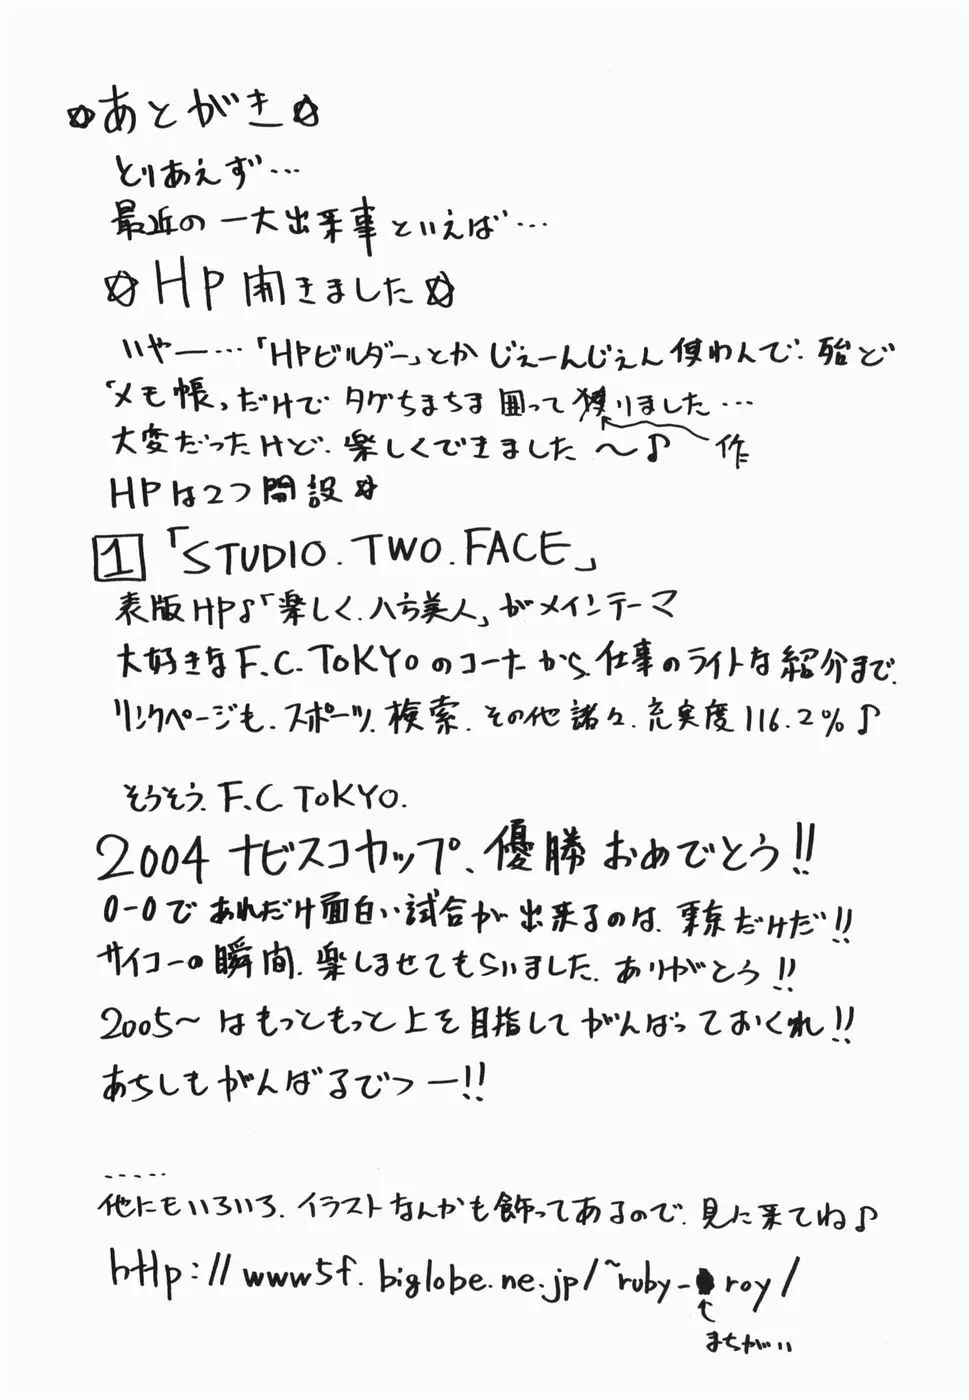 ☆あとがき☆
とりあえず…
最近の一大出来事といえば…
☆HP開きました☆
いやー…「HPビルダー」とかじぇーんじぇん使わんで、殆ど
「メモ帳」だけでタグちまちま囲って りました…
大変だったけど、楽しくできました～♪ 作
HPは2つ開設☆
1「STUDIO.TWO.FACE」
表版HP♪「楽しく、八方美人」がメインテーマ
大好きなF.C.TOKYOのコーナーから、仕事のライトな紹介まで。
リンクページも、スポーツ、検索、その他諸々、充実度116.2%♪
そうそう、F.C TOKYO.
2004ナビスコカップ、優勝おめでとう!!
0-0であれだけ面白い試合が出来るのは、東京だけだ!!
サイコーの瞬間、楽しませてもらいました、ありがとう!!
2005～はもっともっと上を目指してがんばっておくれ!!
あちしもがんばるでつー!!
.....
他にもいろいろ、イラストなんかも飾ってあるので、見に来てね♪
http://www5f.biglobe.ne.jp/~ruby-roy/
まちがい